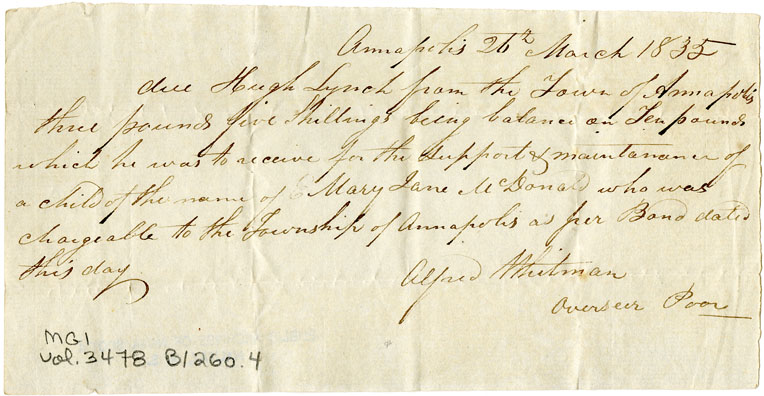 Annapolis 26th March 1835
due Hugh Lynch from the Town of Annapolis
three pounds five Shillings being balance on Ten pounds
which he was to receive for the support & maintanance of
a child of the name of Mary Jane McDonald who was
chargeable to the Township of Annapolis as per Bond dated
this day
Alfred Whitman
Overseer Poor
MG1
Vol. 3478 B/260.4